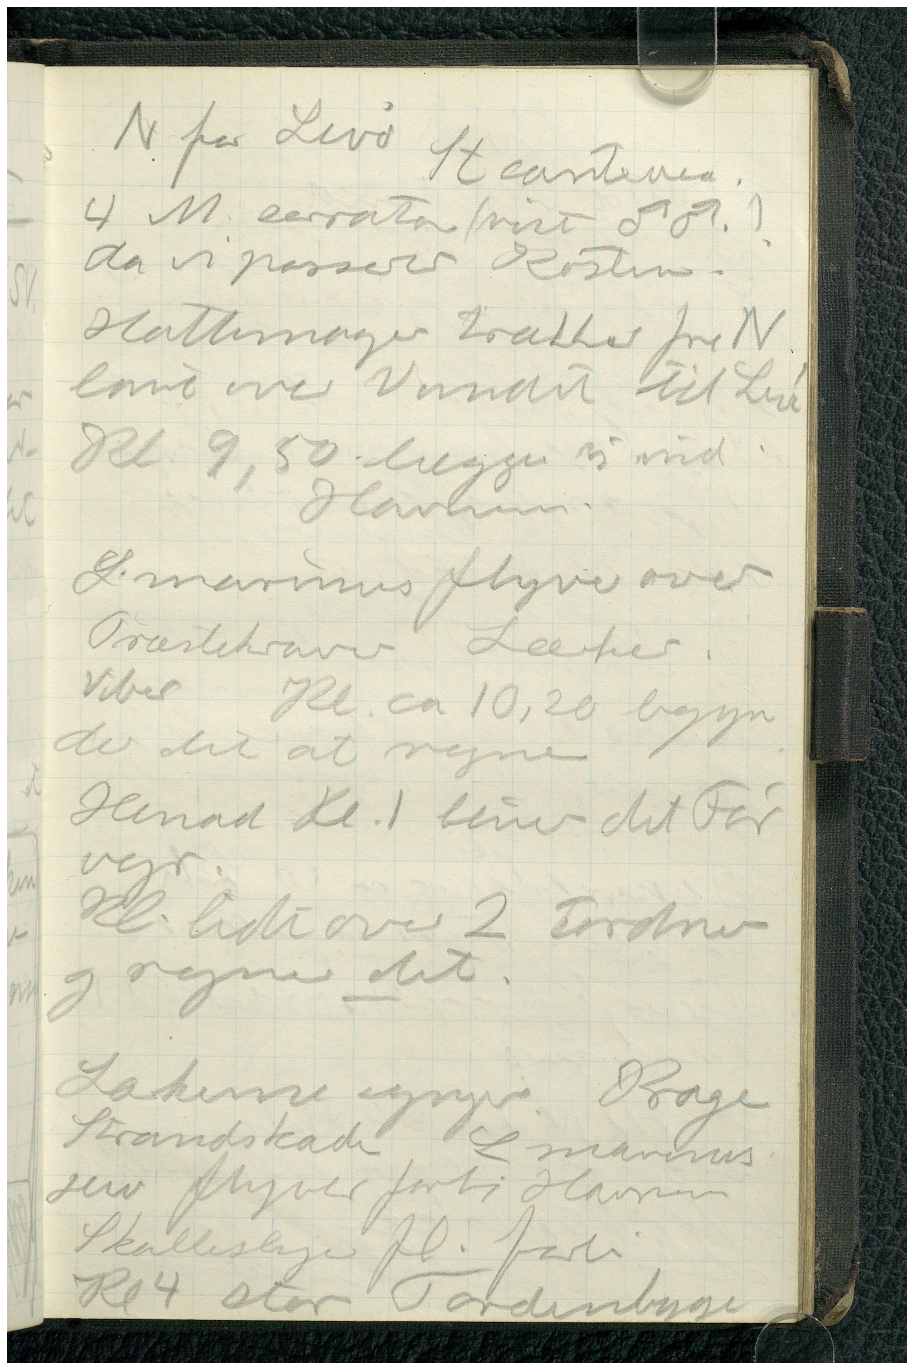 N for Livö St cantiaca.
4 M. serrator (vist ♂♂.)
da vi passerer Kosten.
Hættemager trækker fra N
lavt over Vandet til Livö
Kl. 9,50 lægge vi ind
Havnen.
L. marinus flyve over
Præstekraver Lærker.
Viber Kl. ca 10,20 begyn
der det at regne
Henad Kl. 1 bliver det Tör
vejr.
Kl. lidt over 2 tordner
og regner det.
Lærkerne synger. Krage
Strandskade L marinus
flyver forbi Havnen
Skallesluger fl. forbi
Kl 4 stor Tordenbyge